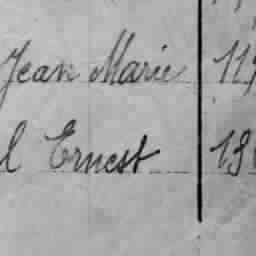 Jean Marie 11
l Ernest 19